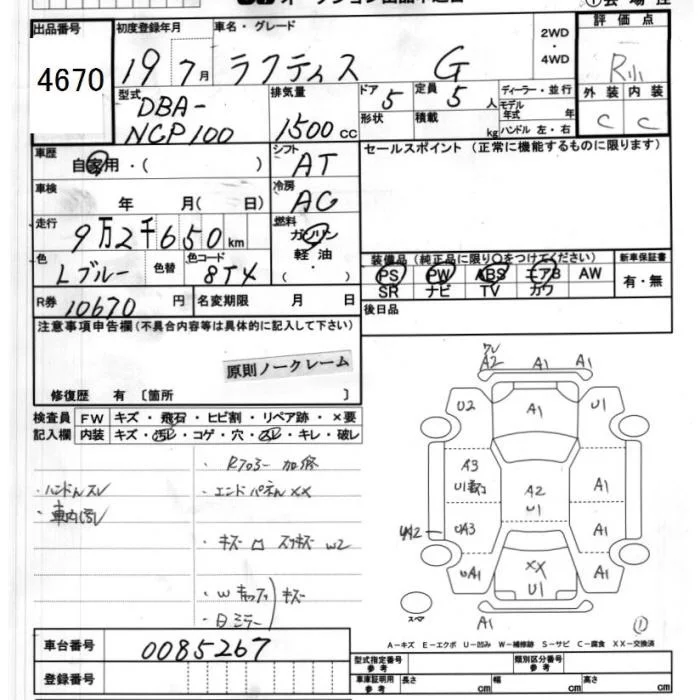 出品番号 初度登録年月 車名・グレード 2WD・4WD 評価点
4670 19年7月 ラクティス G R小
型式 排気量 ドア 定員 ディーラー・並行 外装 内装
DBA-NCP100 1500cc 5 5人 モデル年式 年 C C
形状 積載 kg ハンドル 左・右
車歴 自家用・( ) シフト AT セールスポイント (正常に機能するものに限ります)
車検 年 月( 日) 冷房 AC
走行 9万2千650km 燃料 ガソリン 軽油 ・( )
色 Lブルー 色替 色コード 8T4
装備品 (純正品に限り〇をつけてください) 新車保証書
PS PW ABS エアB AW 有・無
SR ナビ TV カワ
R券 10670円 名変期限 月 日 後日品
注意事項申告欄(不具合内容等は具体的に記入して下さい)
原則ノークレーム
修復歴 有 〔箇所 〕
検査員 FW キズ・飛石・ヒビ割・リペア跡・×要
記入欄 内装 キズ・汚レ・コゲ・穴・スレ・キレ・破レ
・ハンドルスレ
・車内汚レ
・Rフロアー 加修
・エンドパネルXX
・キズ ロ スリキズ W2
・Wキャップ
・日ミラー キズ
ワレ
A2 A1 A1
U2 A1 U1
A3 A2 A1
U1 U1
UA3 A1
UA1 XX A1
U1
スペア A1 ①
A-キズ E-エクボ U-凹み W-補修跡 S-サビ C-腐食 XX-交換済
車台番号 0085267
型式指定番号 参考 類別区分番号 参考
登録番号 車庫証明用 参考 長さ cm 幅 cm 高さ cm